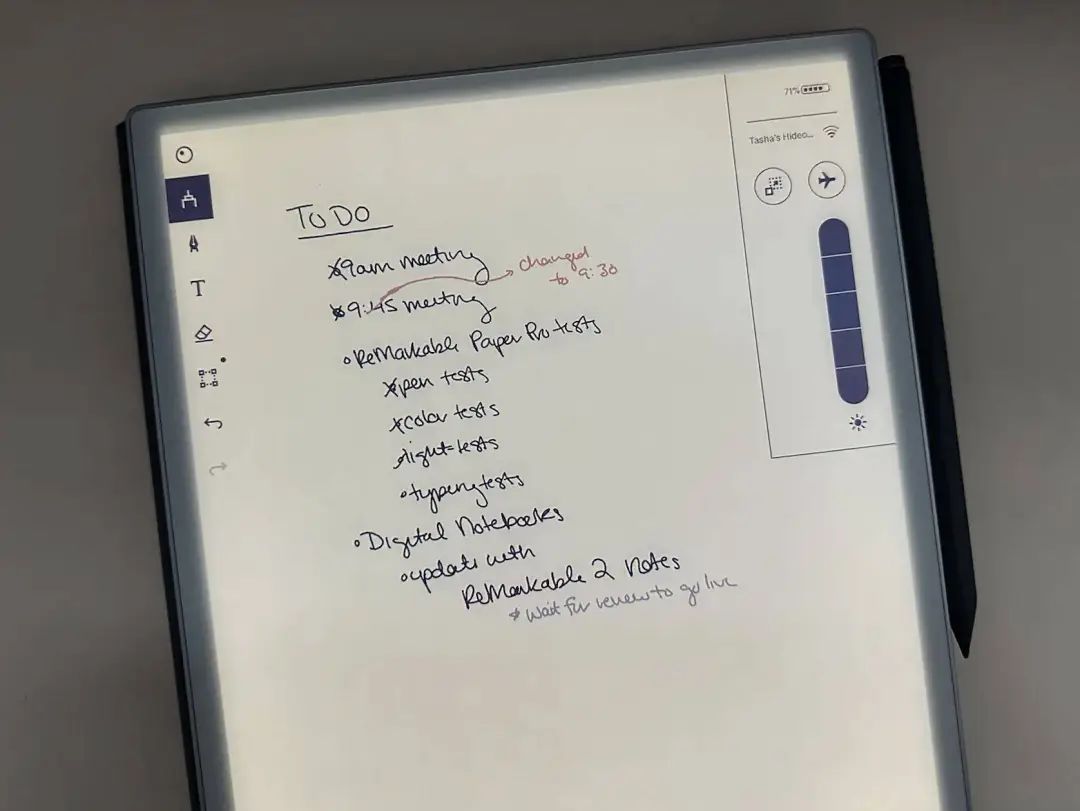 71%
Tasha's Hideo...
T
TO DO
x9am meeting
changed
to 9:30
x9:45 meeting
•ReMarkable Paper Pro tests
xpen tests
xcolor tests
•light tests
•typing tests
•Digital Notebooks
•update with
ReMarkable 2 notes
*wait for review to go live